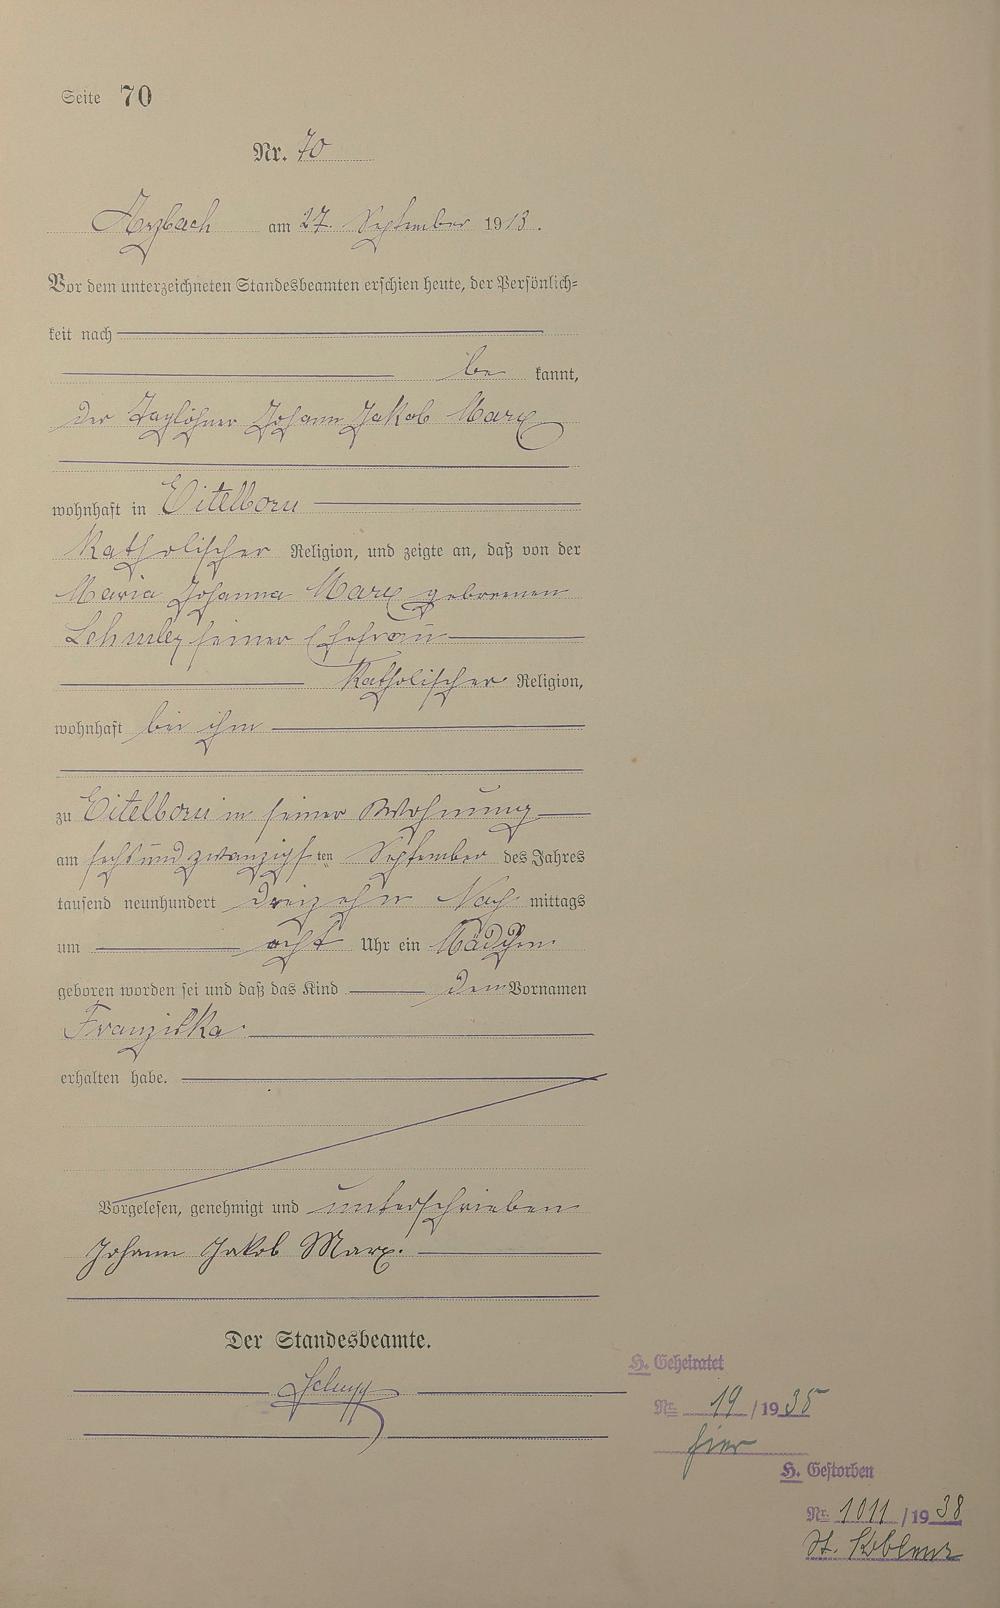 Seite 70
Nr. 70
Arzbach am 27. September 1913.
Vor dem unterzeichneten Standesbeamten erschien heute, der Persönlich-
keit nach
be kannt,
der Taglöhner Johann Jakob Marx
wohnhaft in Eitelborn
katholischer Religion, und zeigte an, daß von der
Maria Johanna Marx geborenen
seiner Ehefrau
katholischer Religion,
wohnhaft bei ihm
zu Eitelborn in seiner Wohnung
am sechsundzwanzigsten September des Jahres
tausend neunhundert dreizehn Nach mittags
um acht Uhr ein Mädchen
geboren worden sei und daß das Kind den Vornamen
Franziska
erhalten habe.
Vorgelesen, genehmigt und unterschrieben
Johann Jakob Marx.
Der Standesbeamte.
H. Geheiratet
Nr. 19 / 1935
hier
H. Gestorben
Nr. 1011 / 1938
St. Koblenz